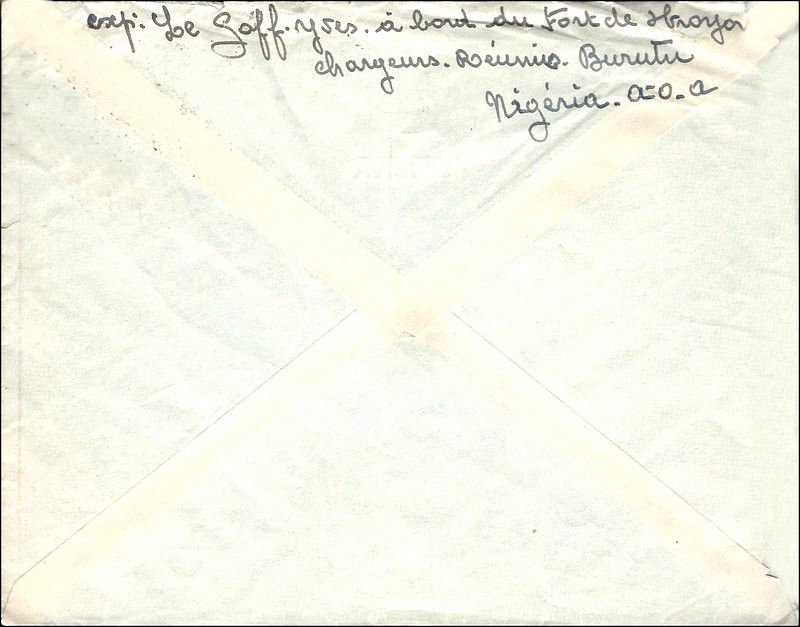 exp: Le Goff. yves. à bord du Fort de Troyon
chargeurs. Réunis. Burutu
Nigéria. a-o. a